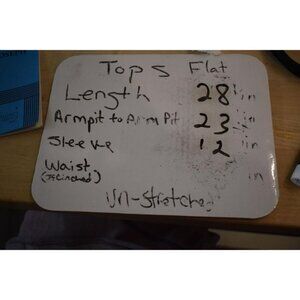 Tops Flat
Length 28 in
Armpit to Arm Pit 23 in
Sleeve 12
Waist in
(If Cinched)
Un-Stretched